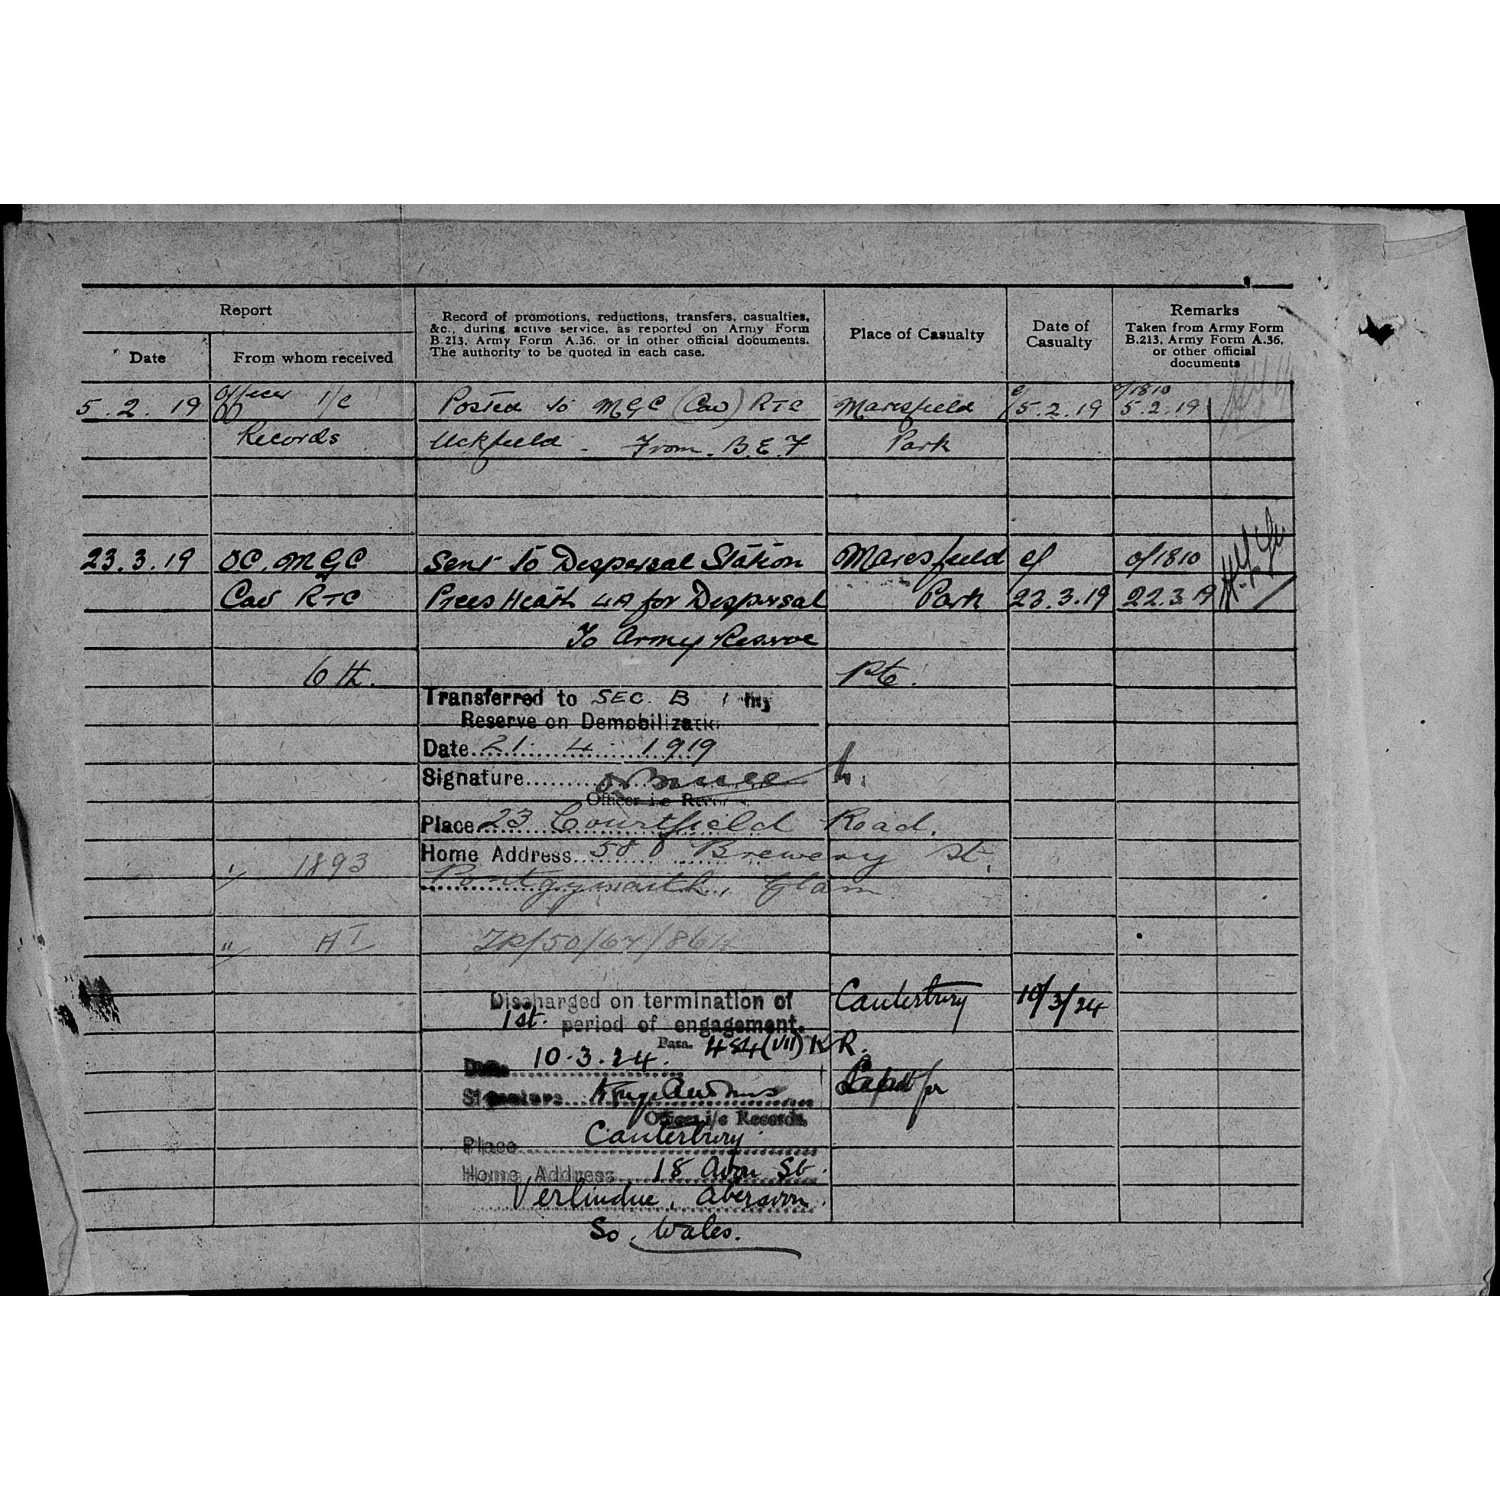 Report
Date
From whom received
Record of promotions, reductions, transfers, casualties,
&c., during active service, as reported on Army Form
B.213, Army Form A.36, or in other official documents.
The authority to be quoted in each case.
Place of Casualty
Date of
Casualty
Remarks
Taken from Army Form
B.213, Army Form A.36,
or other official
documents
5.2.19 Officer I/c Posted to MGC (Cav) RTC Maresfield 5.2.19 o/1810 5.2.19
Records Uckfield - From B.E.F Park
23.3.19 OC. MGC Sent to Dispersal Station Maresfield ef o/1810
Cav RTC Prees Heath 4A for Dispersal Park 23.3.19 22.3.19
To Army Reserve
6th. Pte.
Transferred to SEC. B
Reserve on Demobilizati
Date 21. 4. 1919
Signature
Officer i/c Rec
Place 23 Courtfield Road.
Home Address 58 Brewery St.
" 1893 Pontygwaith, Glam
"
Discharged on termination of Canterbury 10/3/24
1st. period of engagement.
Para. 484 (VII) K R.
Date 10.3.24.
Signature Capt for
Officer i/c Records.
Place Canterbury
Home Address 18 Avon St.
Aberavon
So. Wales.